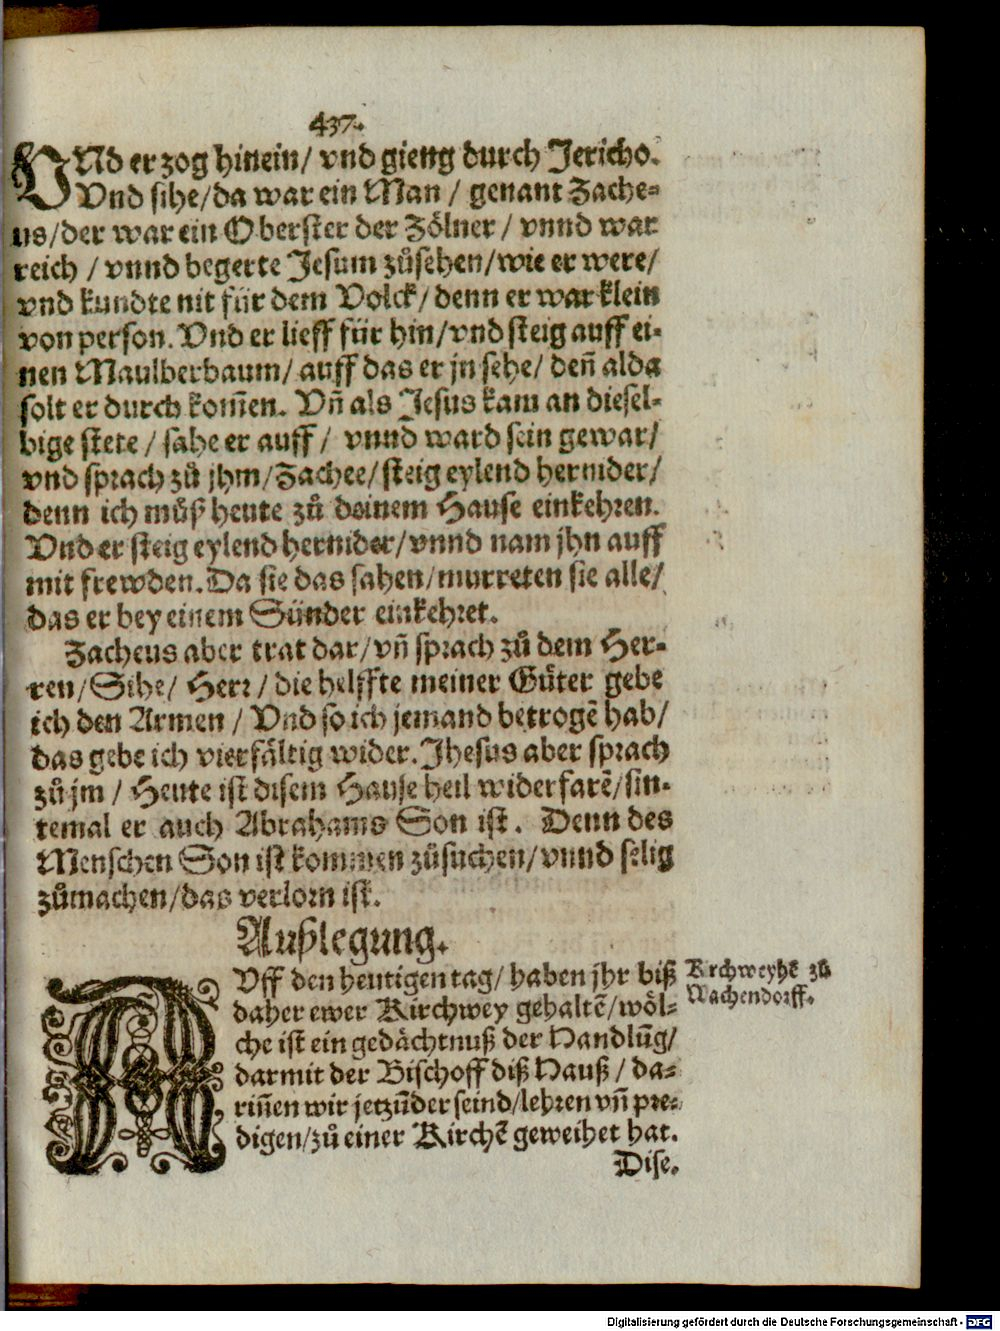 437.
VNd er zog hinein/ vnd gieng durch Jericho.
Vnd sihe/da war ein Man / genant Zache-
us/der war ein Oberster der Zölner / vnnd war
reich / vnnd begerte Jesum zůsehen/wie er were/
vnd kundte nit für dem Volck/ denn er war klein
von person. Vnd er lieff für hin/vnd steig auff ei-
nen Maulberbaum/ auff das er jn sehe/ deñ alda
solt er durch kom̃en. Vñ als Jesus kam an diesel-
bige stete / sahe er auff / vnnd ward sein gewar/
vnd sprach zů jhm/Zachee/steig eylend hernider/
denn ich můß heute zů deinem Hause einkehren.
Vnd er steig eylend hernider/vnnd nam jhn auff
mit frewden. Da sie das sahen/murreten sie alle/
das er bey einem Sünder einkehret.
Zacheus aber trat dar/vñ sprach zů dem Her-
ren/Sihe/ Herr/die helffte meiner Gůter gebe
ich den Armen / Vnd so ich jemand betrogẽ hab/
das gebe ich vierfältig wider. Jhesus aber sprach
zů jm / Heute ist disem Hause heil widerfarẽ/sin-
temal er auch Abrahams Son ist. Denn des
Menschen Son ist kommen zůsuchen/vnnd selig
zůmachen/das verlorn ist.
Außlegung.
AVff den heutigen tag/ haben jhr biß
daher ewer Kirchwey gehaltẽ/wöl-
che ist ein gedächtnuß der Handlũg/
darmit der Bischoff diß Hauß / da-
riñen wir jetzũder seind/lehren vñ pre-
digen/zů einer Kirchẽ geweihet hat.
Dise.
Kirchweyhẽ zů
Nachendorff.
Digitalisierung gefördert durch die Deutsche Forschungsgemeinschaft - DFG